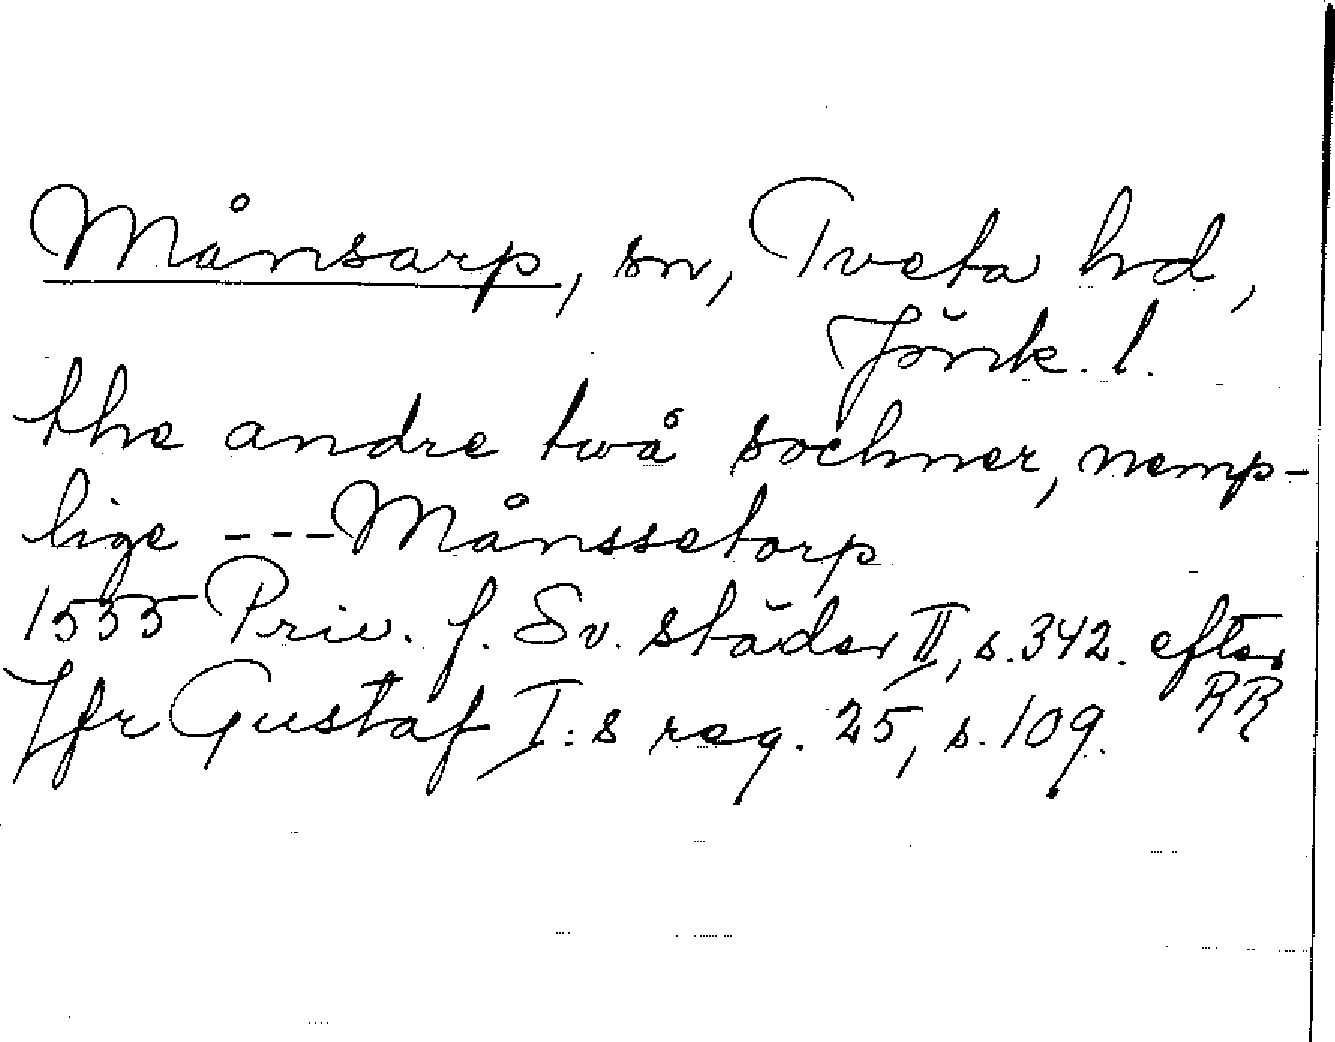 Månsarp, sn, Tveta hd,
Jönk. l.
the andre två sochner, nemp-
lige --- Månssetorp
1555 Priv. f. Sv. städer II, s. 342. efter
RR
Jfr Gustaf I:s reg. 25, s. 109.